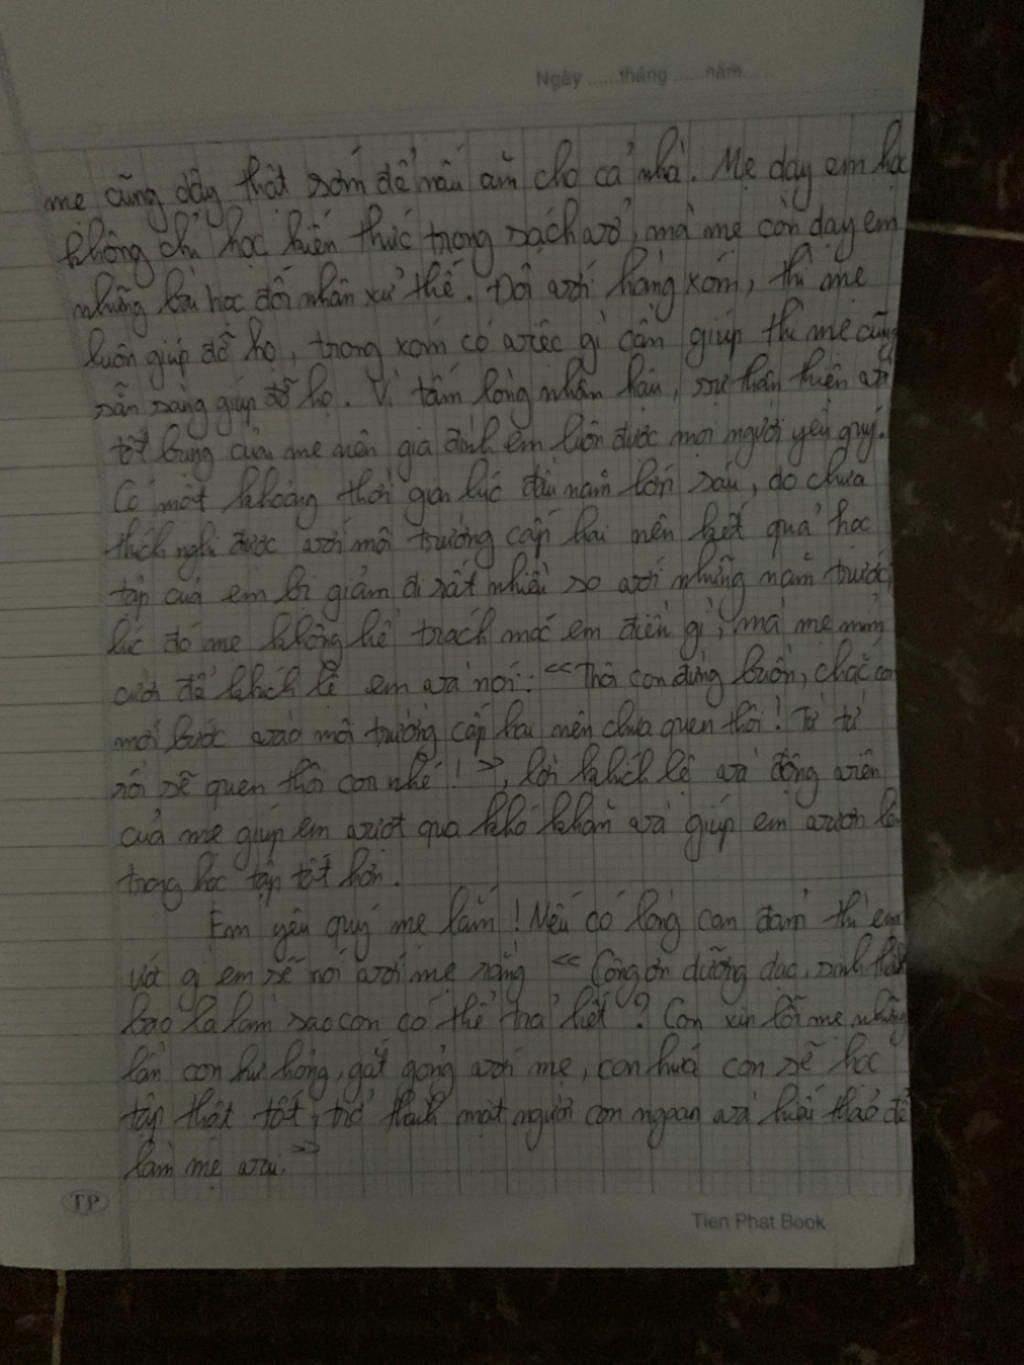 Ngày ......tháng ......năm......
mẹ cũng dậy thật sớm để nấu ăn cho cả nhà. Mẹ dạy em học
không chỉ học kiến thức trong sách vở, mà mẹ còn dạy em
những bài học đối nhân xử thế. Đối với hàng xóm, thì mẹ
luôn giúp đỡ họ, trong xóm có việc gì cần giúp thì mẹ cũng
sẵn sàng giúp đỡ họ. Vì tấm lòng nhân hậu, sự thân thiện và
tốt bụng của mẹ nên gia đình em luôn được mọi người yêu quý.
Có một khoảng thời gian lúc đầu năm lớp sáu, do chưa
thích nghi được với môi trường cấp hai nên kết quả học
tập của em bị giảm đi rất nhiều so với những năm trước,
lúc đó mẹ không hề trách móc em điều gì, mà mẹ mỉm
cười để khích lệ em và nói: "Thôi con đừng buồn, chắc con
mới bước vào môi trường cấp hai nên chưa quen thôi! Từ từ
rồi sẽ quen thôi con nhé!", lời khích lệ và động viên
của mẹ giúp em vượt qua khó khăn và giúp em vươn lên
trong học tập tốt hơn.
Em yêu quý mẹ lắm! Nếu có lòng can đảm thì em
ước gì em sẽ nói với mẹ rằng "Công ơn dưỡng dục, sinh thành
bao la làm sao con có thể trả hết? Con xin lỗi mẹ những
lần con hư hỏng, gắt gỏng với mẹ, con hứa con sẽ học
tập thật tốt, trở thành một người con ngoan và hiếu thảo để
làm mẹ vui."
TP
Tien Phat Book